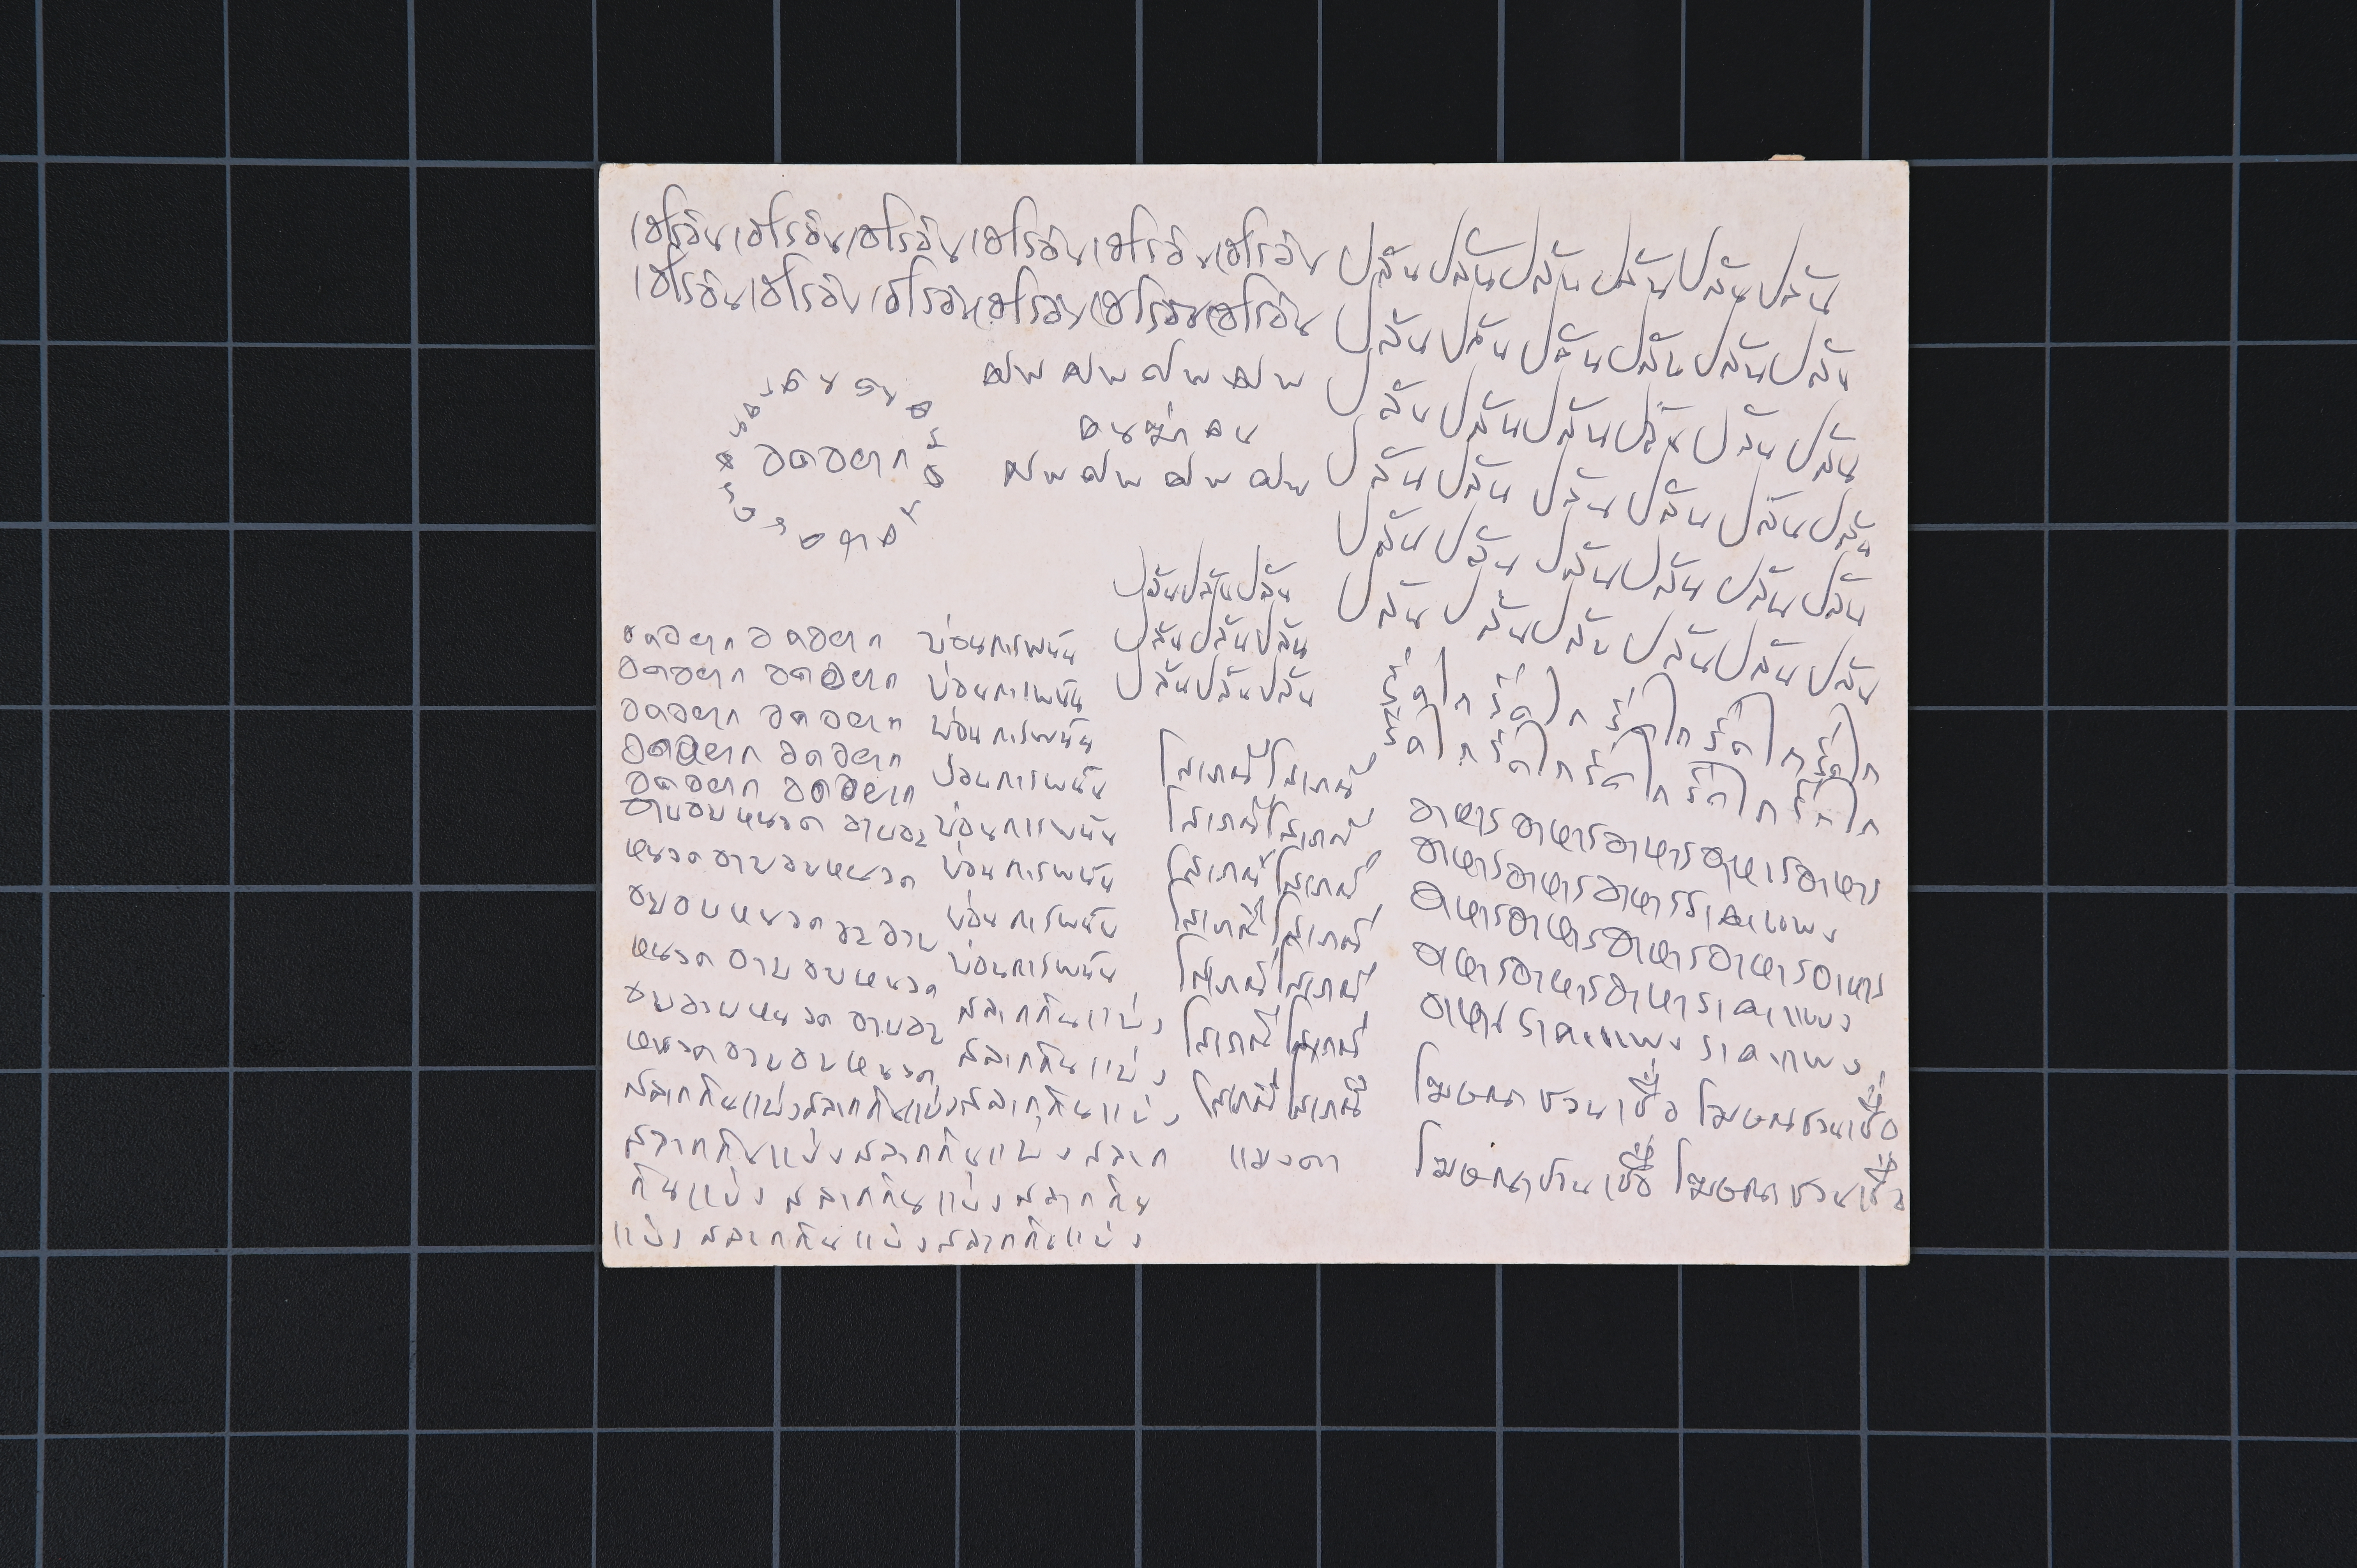 เฮโรอีน เฮโรอีน เฮโรอีน เฮโรอีน เฮโรอีน เฮโรอีน
เฮโรอีน เฮโรอีน เฮโรอีน เฮโรอีน เฮโรอีน เฮโรอีน
ศพ ศพ ศพ ศพ
คนฆ่าคน
ศพ ศพ ศพ ศพ
อดอยาก
ปล้น ปล้น ปล้น ปล้น ปล้น ปล้น
ปล้น ปล้น ปล้น ปล้น ปล้น ปล้น
ปล้น ปล้น ปล้น ปล้น ปล้น ปล้น
ปล้น ปล้น ปล้น ปล้น ปล้น ปล้น
ปล้น ปล้น ปล้น ปล้น ปล้น ปล้น
ปล้น ปล้น ปล้น ปล้น ปล้น ปล้น
ปล้น ปล้น ปล้น
ปล้น ปล้น ปล้น
ปล้น ปล้น ปล้น
อดอยาก อดอยาก
อดอยาก อดอยาก
อดอยาก อดอยาก
อดอยาก อดอยาก
อดอยาก อดอยาก
อาบอบนวด
บ่อนการพนัน
บ่อนการพนัน
บ่อนการพนัน
บ่อนการพนัน
บ่อนการพนัน
บ่อนการพนัน
บ่อนการพนัน
บ่อนการพนัน
สลากกินแบ่ง
สลากกินแบ่ง
สลากกินแบ่ง สลากกินแบ่ง สลากกินแบ่ง
สลากกินแบ่ง สลากกินแบ่ง สลาก
กินแบ่ง สลากกินแบ่ง สลากกิน
แบ่ง สลากกินแบ่ง สลากกินแบ่ง
โสเภณี โสเภณี
โสเภณี โสเภณี
โสเภณี โสเภณี
โสเภณี โสเภณี
โสเภณี โสเภณี
โสเภณี โสเภณี
โสเภณี โสเภณี
แมงดา
รีดไถ รีดไถ รีดไถ รีดไถ รีดไถ
รีดไถ รีดไถ รีดไถ รีดไถ รีดไถ
อาหาร อาหาร อาหาร อาหาร อาหาร
อาหาร อาหาร อาหาร ราคาแพง
อาหาร อาหาร อาหาร อาหาร อาหาร
อาหาร อาหาร อาหาร ราคาแพง
อาหาร ราคาแพง ราคาแพง
โฆษณาชวนเชื่อ โฆษณาชวนเชื่อ
โฆษณาชวนเชื่อ โฆษณาชวนเชื่อ